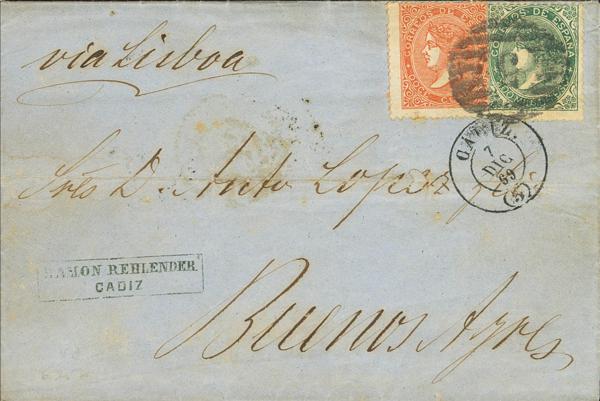 via Lisboa
CORREOS DE ESPAÑA
CORREOS DE ESPAÑA
7
DIC
69
(5)
Sres D. Anto Lopez
RAMON REHLENDER.
CADIZ
Buenos Ayres